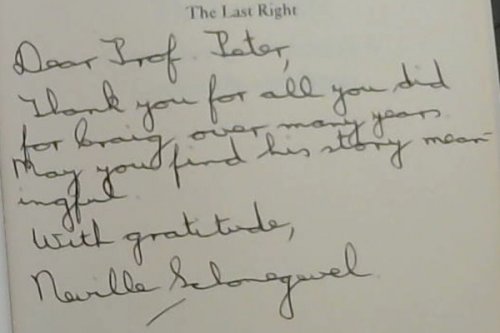 The Last Right
Dear Prof. Peter,
Thank you for all you did
for Craig over many years.
May you find his story mean-
ingful.
With gratitude,
Neville Schonegevel